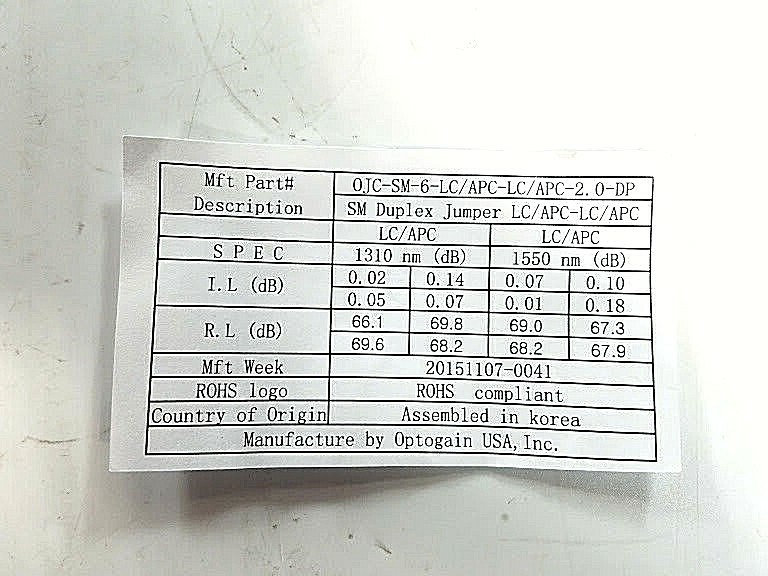 Mft Part# OJC-SM-6-LC/APC-LC/APC-2.0-DP
Description SM Duplex Jumper LC/APC-LC/APC
LC/APC LC/APC
S P E C 1310 nm (dB) 1550 nm (dB)
I.L (dB) 0.02 0.14 0.07 0.10
0.05 0.07 0.01 0.18
R.L (dB) 66.1 69.8 69.0 67.3
69.6 68.2 68.2 67.9
Mft Week 20151107-0041
ROHS logo ROHS compliant
Country of Origin Assembled in korea
Manufacture by Optogain USA, Inc.